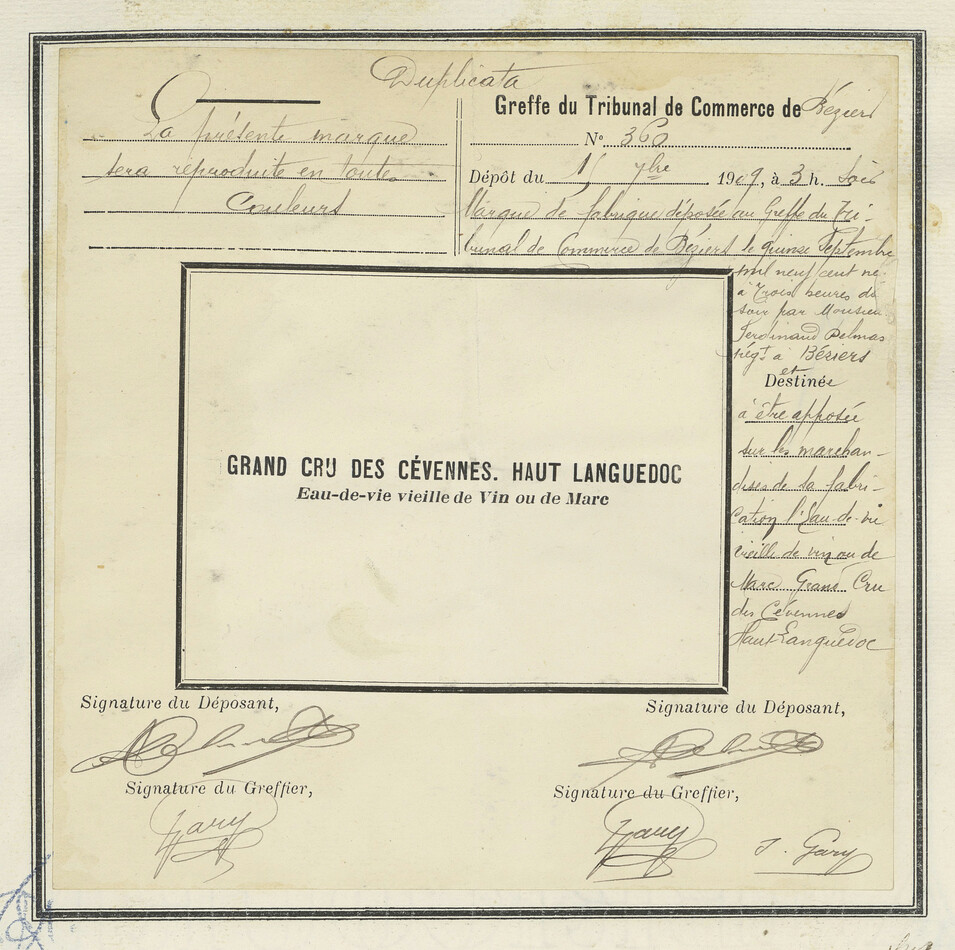 Duplicata
La présente marque
sera reproduite en toutes
Couleurs
Greffe du Tribunal de Commerce de Béziers
No 360
Dépôt du 15 7bre 1909, à 3 h. Soir
Marque de fabrique déposée au Greffe du Tri-
bunal de Commerce de Béziers le quinze Septembre
mil neuf cent ne
à Trois heures du
soir par Monsieu
Ferdinand Delmas
négt à Béziers
et
Destinée
à être apposée
sur les marchan-
dises de sa fabri-
cation l'Eau-de-vie
vieille de vin ou de
Marc Grand Cru
des Cévennes
Haut Languedoc
GRAND CRU DES CÉVENNES. HAUT LANGUEDOC
Eau-de-vie vieille de Vin ou de Marc
Signature du Déposant,
Signature du Déposant,
Delmas
Delmas
Signature du Greffier,
Signature du Greffier,
Gary
Gary
J. Gary